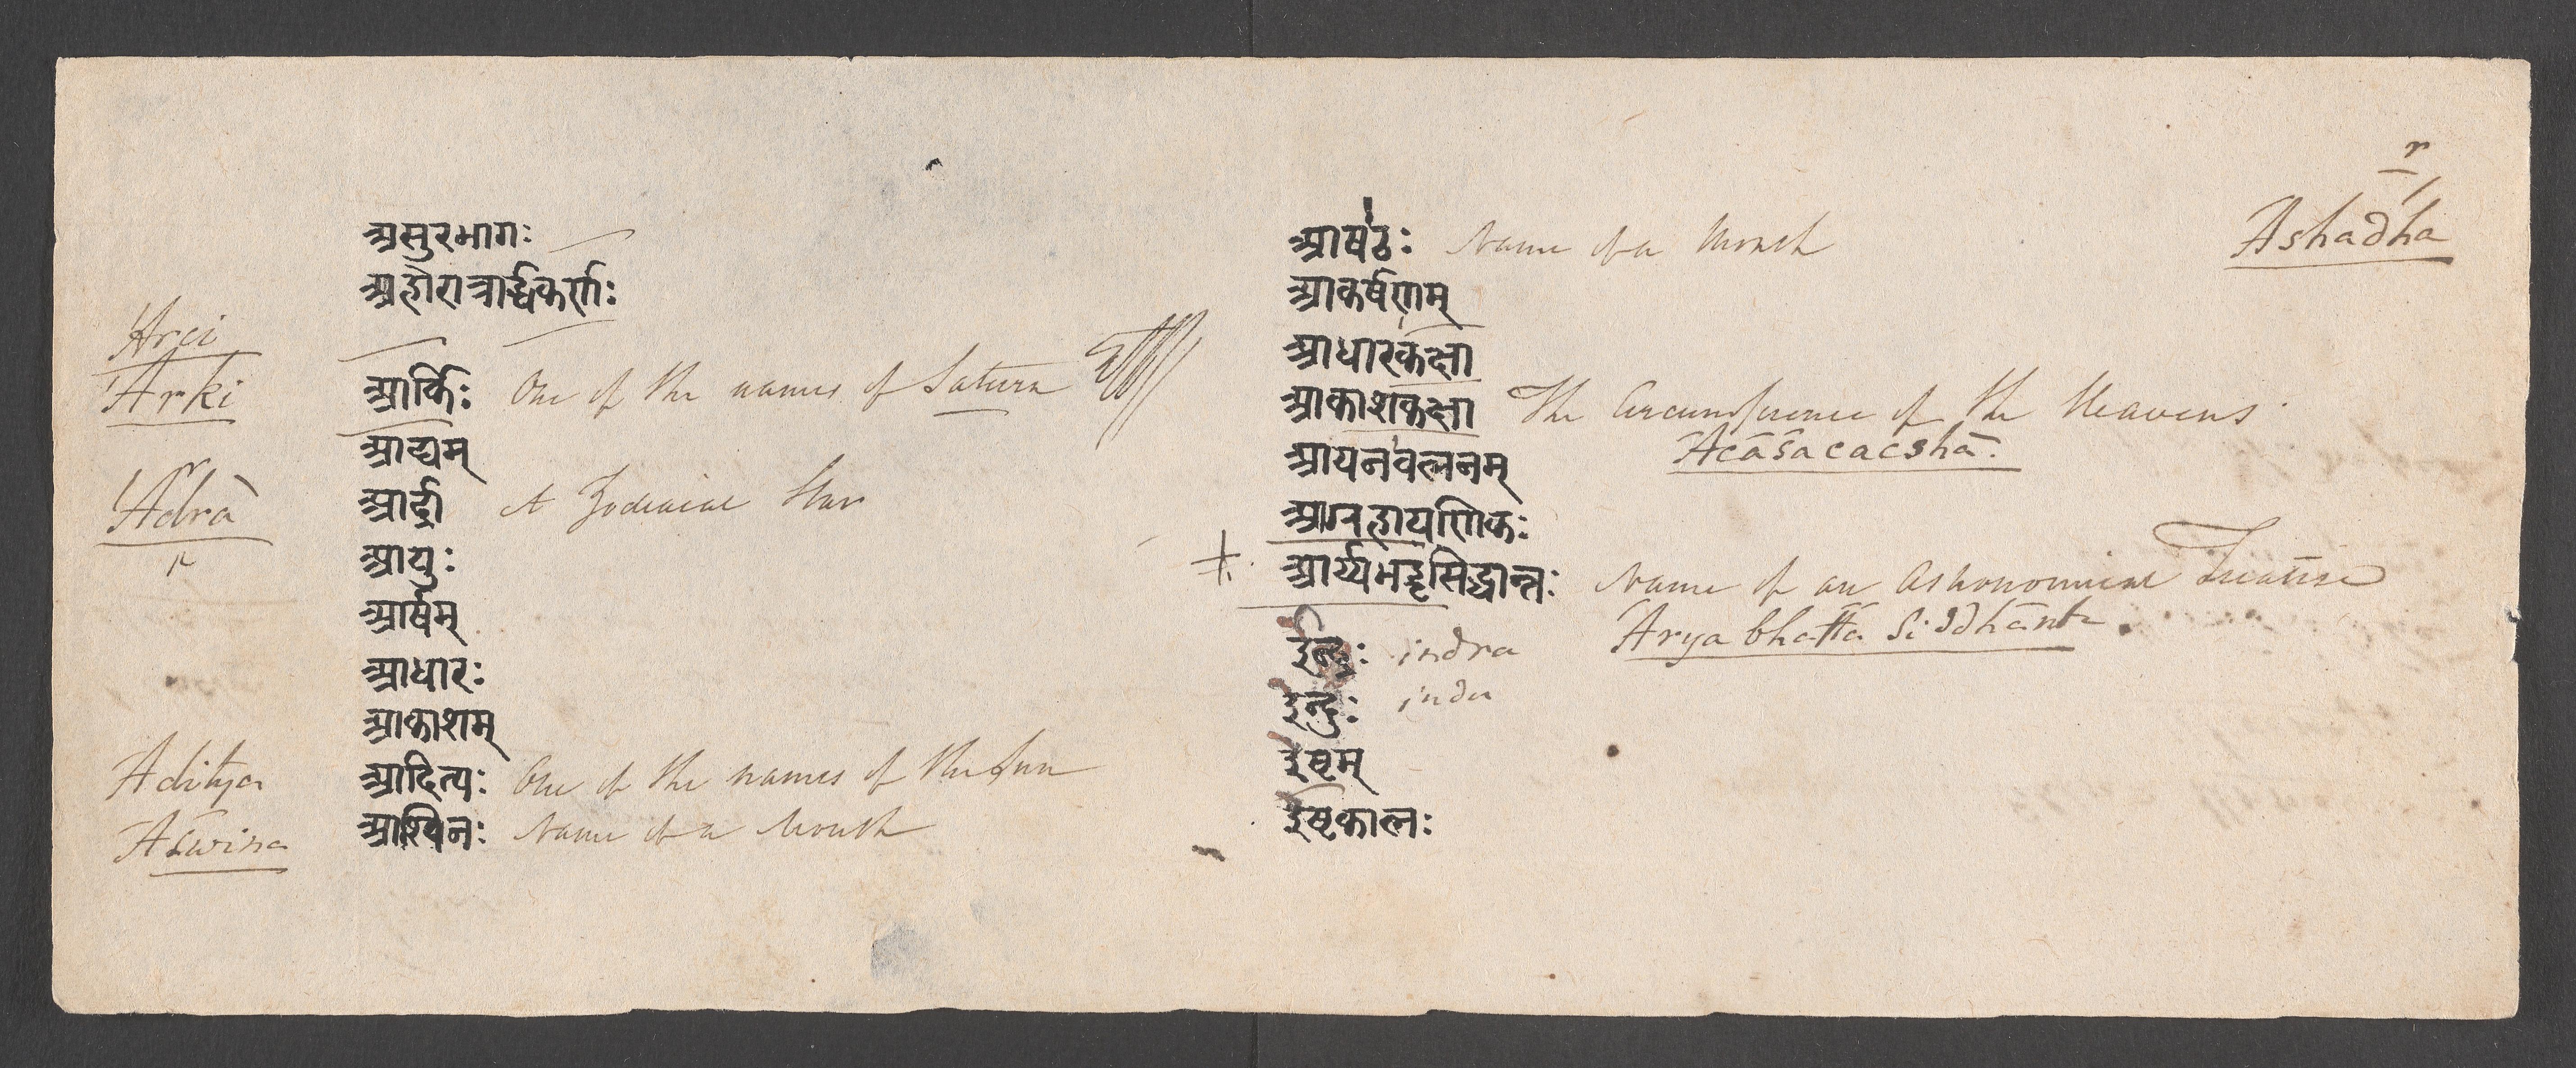 असुरभागः
अहोरात्रार्द्धकर्णः
Arci
Arki आर्किः One of the names of Saturn
आद्यम्
Adrà आर्द्रा A Zodiacal Star
r
आयुः
आर्षम्
आधारः
आकाशम्
Aditya आदित्यः One of the names of the Sun
Aświna आश्विनः Name of a Month
r
आषाढः Name of a Month Ashadha
आकर्षणम्
आधारकक्षा
आकाशकक्षा The Circumference of the Heavens
Acāśacacshā.
आयनवलनम्
आग्रहायणिकः
+ आर्य्यभट्टसिद्धान्तः Name of an Astronomical Treatise
Arya bhatta Siddhānta
इन्द्रः indra
इन्दुः indu
इष्टम्
इष्टकालः